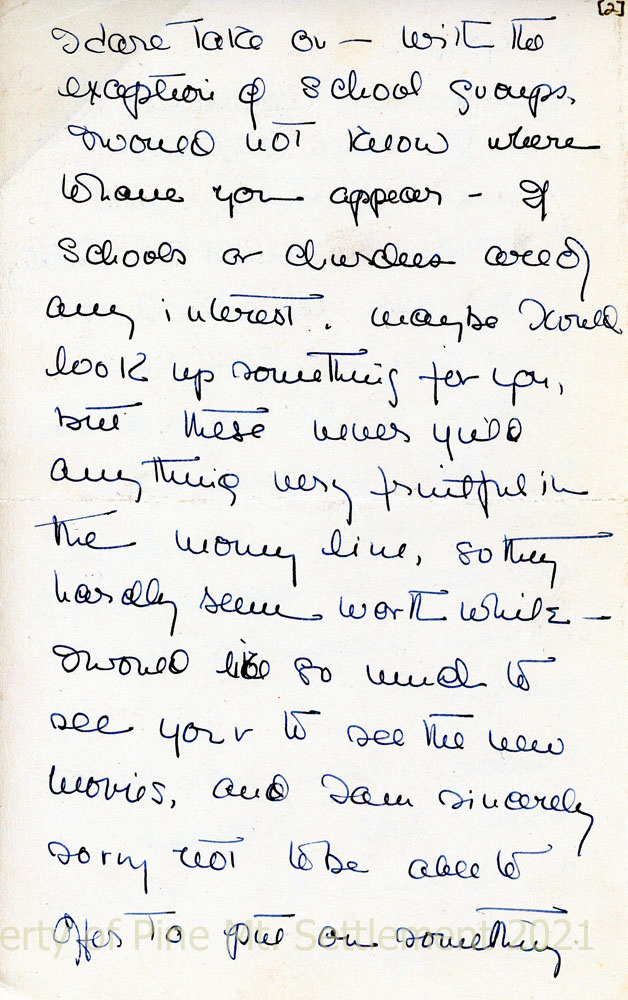 [2]
I dare take on — with the
exception of school groups.
I would not know where
to have you appear - If
schools or churches are of
any interest. maybe I could
look up something for you,
but these never yield
anything very fruitful in
the money line, so they
hardly seem worth while —
I would like so much to
see you & to see the new
movies, and I am sincerely
sorry not to be able to
offer to put on something
erty of Pine Mt. Settlement 2021